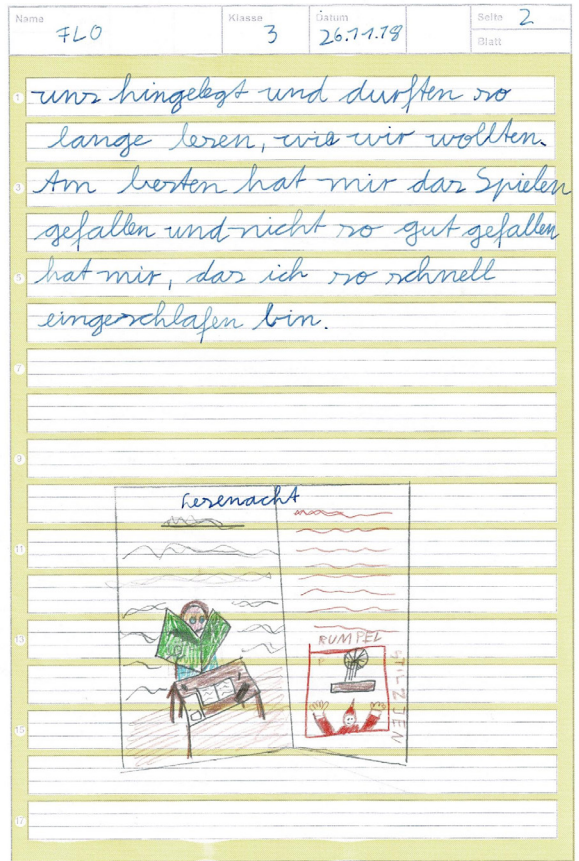 Name FLO Klasse 3 Datum 26.11.18 Seite 2
Blatt
1 uns hingelegt und durften so
lange lesen, wie wir wollten.
3 Am besten hat mir das Spielen
gefallen und nicht so gut gefallen
5 hat mir, das ich so schnell
eingeschlafen bin.
7
9
Lesenacht
11
13
RUMPEL
STILZJEN
15
17